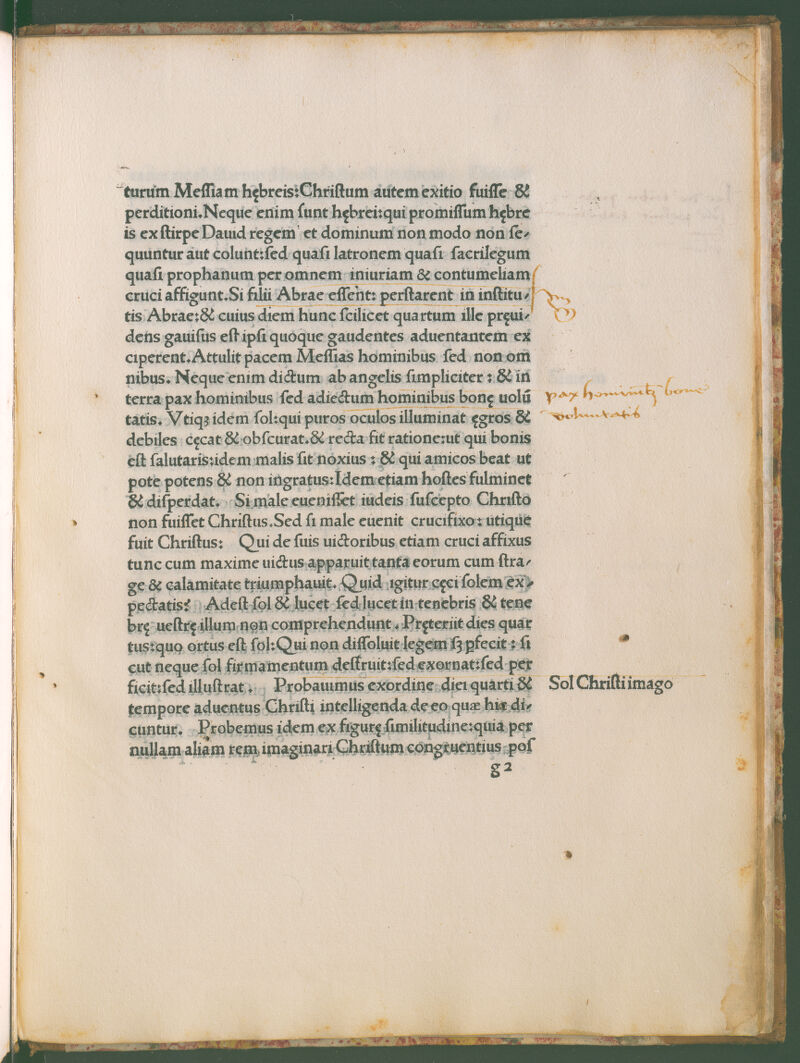 turum Meſſiam hębreis:Chriſtum autem exitio fuiſſe &
perditioni.Neque enim ſunt hębrei:qui promiſſum hębre
is ex ſtirpe Dauid regem et dominum non modo non ſe⸗
quuntur aut colunt:ſed quaſi latronem quaſi ſacrilegum
quaſi prophanum per omnem iniuriam & contumeliam
cruci affigunt.Si filii Abrae eſſent: perſtarent in inſtitu⸗
tis Abrae:& cuius diem hunc ſcilicet quartum ille pręui⸗
dens gauiſus eſt ipſi quoque gaudentes aduentantem ex
ciperent.Attulit pacem Meſſias hominibus ſed non om
nibus. Neque enim dictum ab angelis ſimpliciter : & in
terra pax hominibus ſed adiectum hominibus bonę uolũ
tatis. Vtiqꝫ idem ſol:qui puros oculos illuminat ęgros &
debiles cęcat & obſcurat.& recta fit ratione:ut qui bonis
eſt ſalutaris:idem malis ſit noxius : & qui amicos beat ut
pote potens & non ingratus:Idem etiam hoſtes fulminet
& diſperdat. Si male eueniſſet iudeis ſuſcepto Chriſto
non fuiſſet Chriſtus.Sed ſi male euenit crucifixo: utique
fuit Chriſtus: Qui de ſuis uictoribus etiam cruci affixus
tunc cum maxime uictus apparuit tanta eorum cum ſtra⸗
ge & calamitate triumphauit. Quid igitur cęci ſolem ex⸗
pectatis? Adeſt ſol & lucet ſed lucet in tenebris & tene
brę ueſtrę illum non comprehendunt. Pręteriit dies quar
tus:quo ortus eſt ſol:Qui non diſſoluit legem ſꝫ ꝑfecit : ſi
cut neque ſol firmamentum deſtruit:ſed exornat:ſed per
ficit:ſed illuſtrat. Probauimus exordine diei quarti &
tempore aduentus Chriſti intelligenda de eo quæ hic di⸗
cuntur. Probemus idem ex figurę ſimilitudine:quia per
nullam aliam rem imaginari Chriſtum congruentius poſ
g2
pax hominibꝫ bone
voluntatis
Sol Chriſti imago